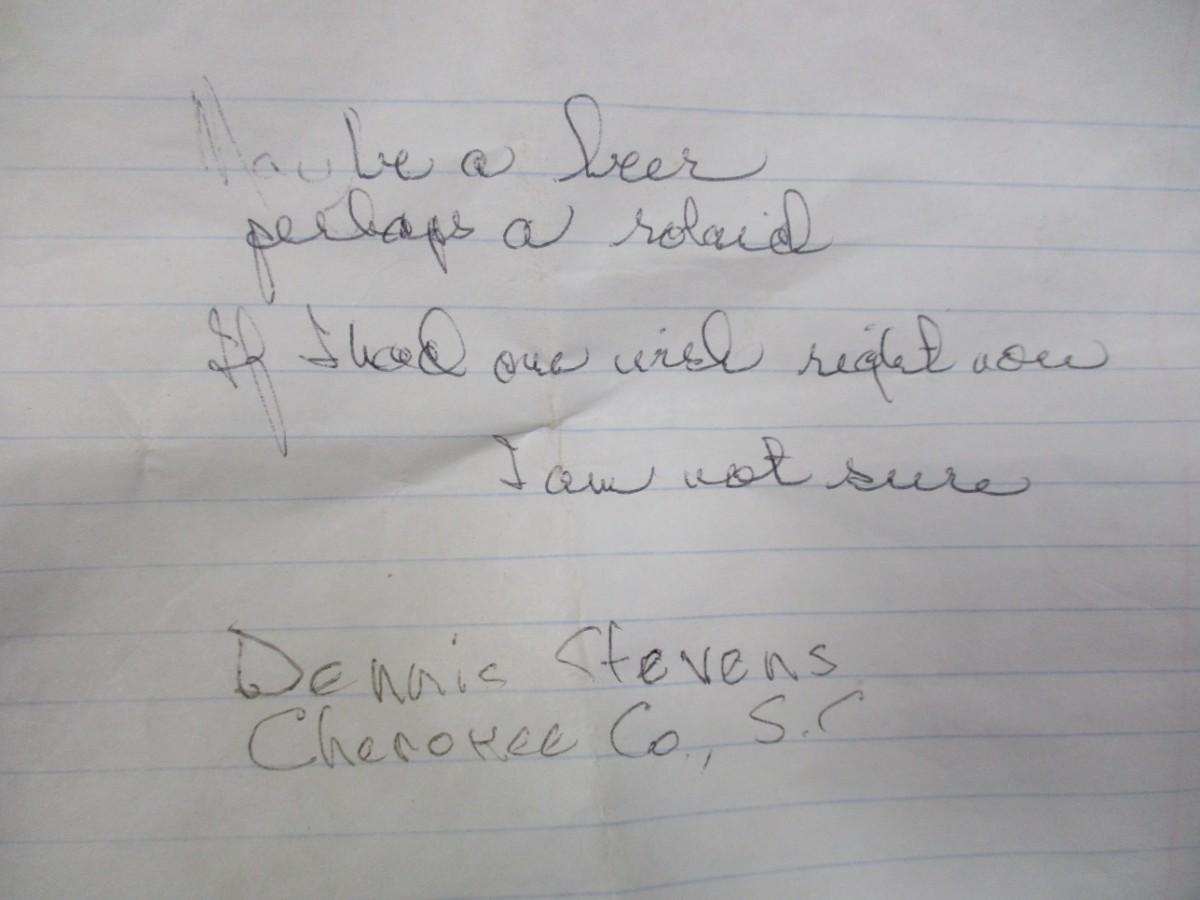 Maybe a beer
perhaps a rolaid
If I had one wish right now
I am not sure
Dennis Stevens
Cherokee Co., S.C